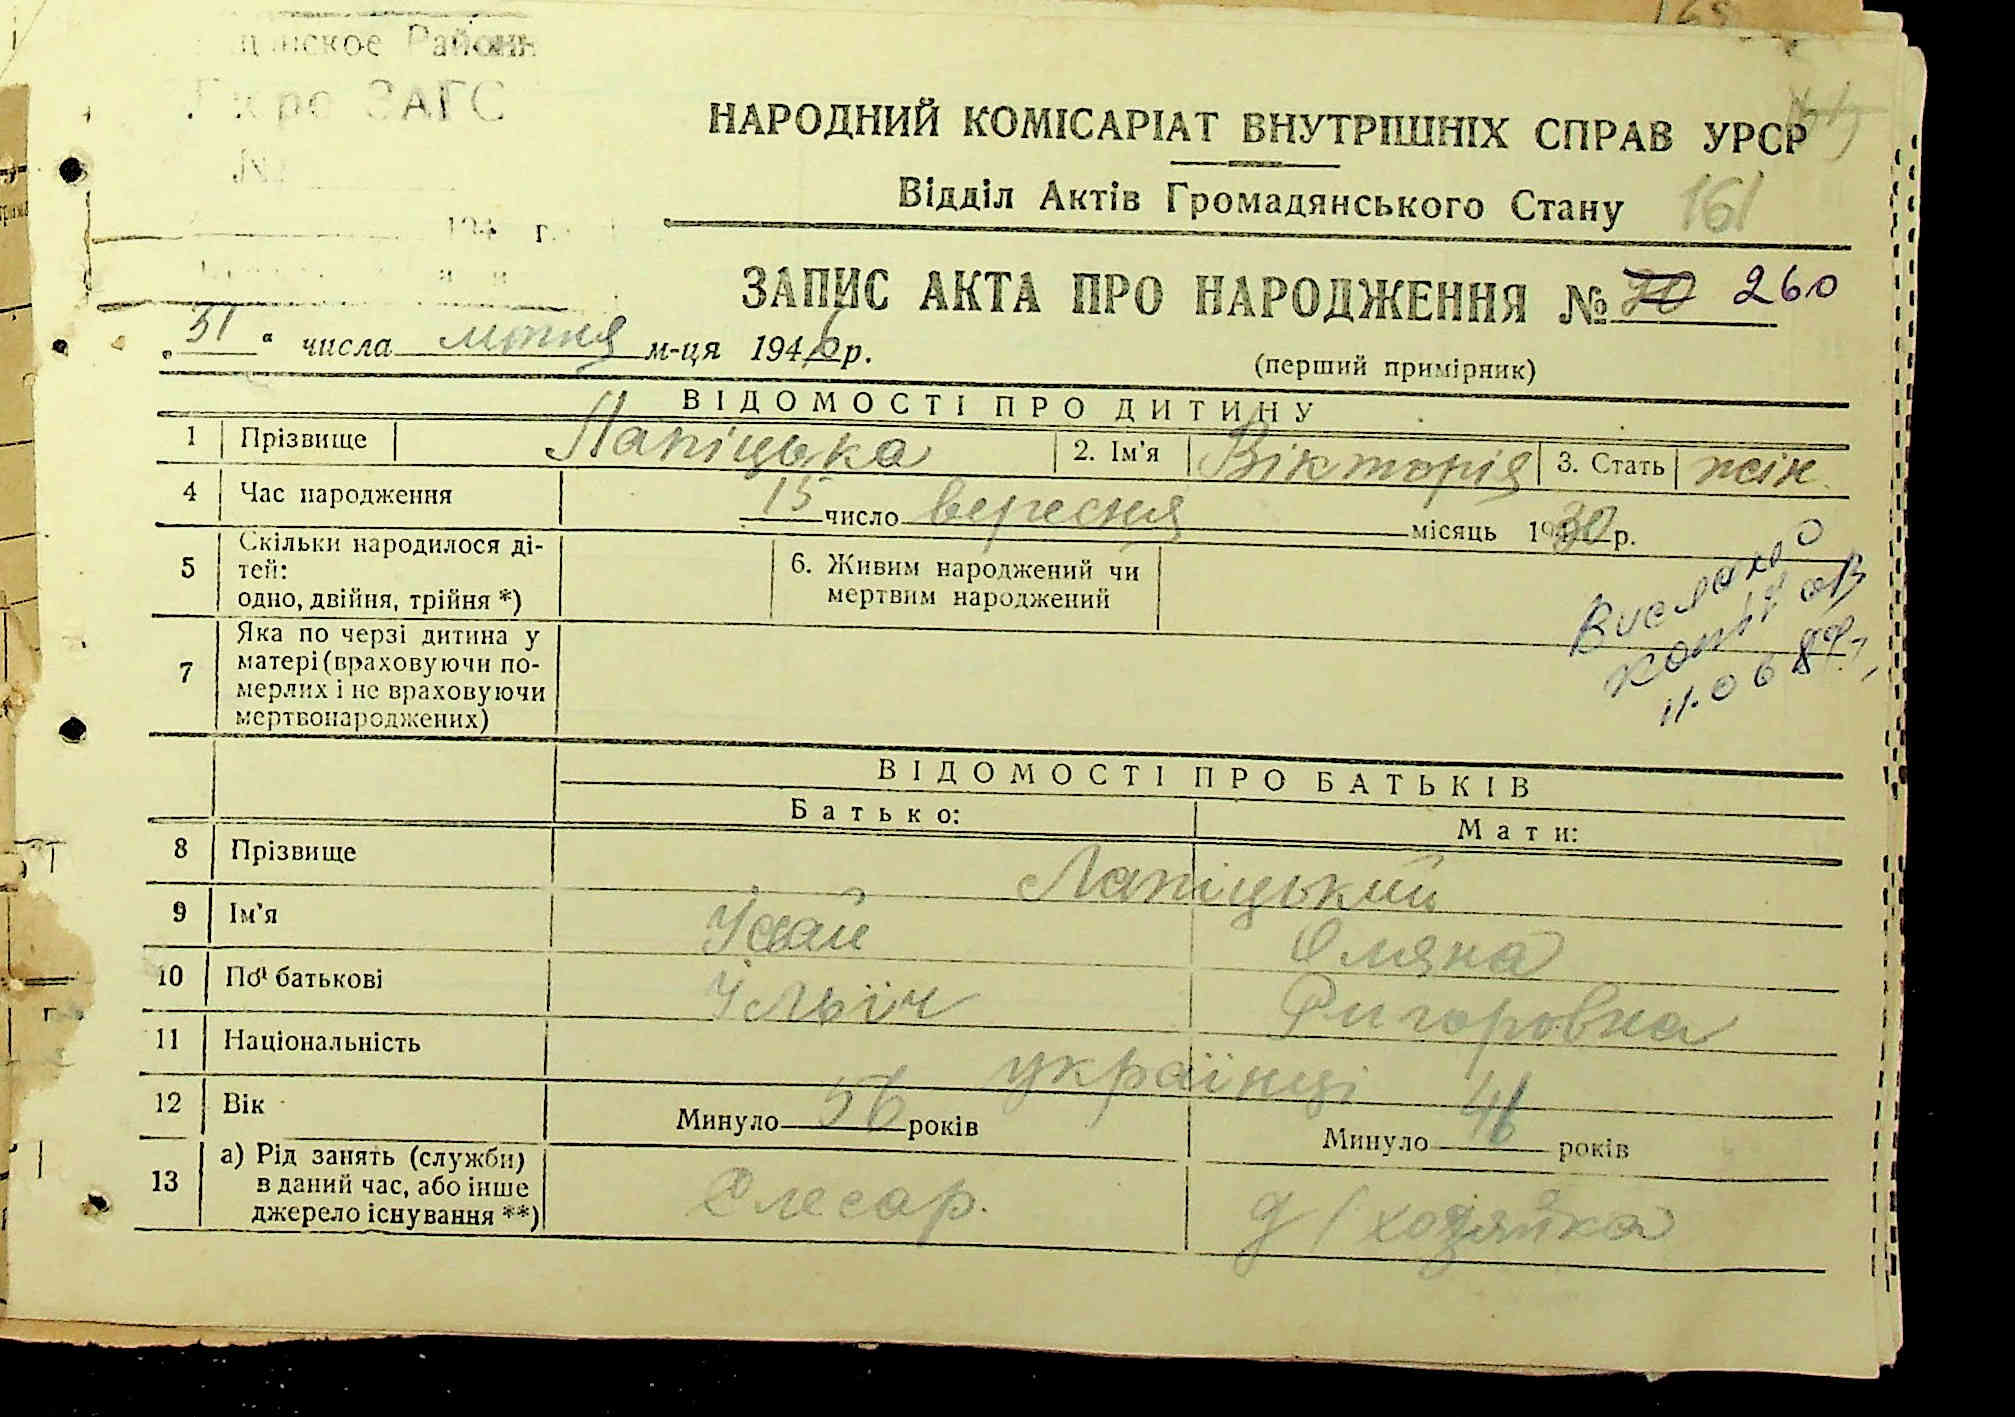 Районн
Бюро ЗАГС
№
194 г.
НАРОДНИЙ КОМІСАРІАТ ВНУТРІШНІХ СПРАВ УРСР
Відділ Актів Громадянського Стану 161
ЗАПИС АКТА ПРО НАРОДЖЕННЯ № 20 260
„31“ числа лютня м-ця 1946 р.
(перший примірник)
ВІДОМОСТІ ПРО ДИТИНУ
1 Прізвище Лапіцька 2. Ім'я Вікторія 3. Стать жін.
4 Час народження 15 число вересня місяць 1930 р.
5 Скільки народилося ді-
тей:
одно, двійня, трійня *)
6. Живим народжений чи
мертвим народжений
7 Яка по черзі дитина у
матері (враховуючи по-
мерлих і не враховуючи
мертвонароджених)
Вислано
копія
11.06
ВІДОМОСТІ ПРО БАТЬКІВ
Батько: Мати:
8 Прізвище Лапіцький
9 Ім'я Ісай Оляна
10 По батькові Ільїч Григоровна
11 Національність українці
12 Вік Минуло 56 років Минуло 46 років
13 а) Рід занять (служби)
в даний час, або інше
джерело існування **)
Слесар. д/хозяйка